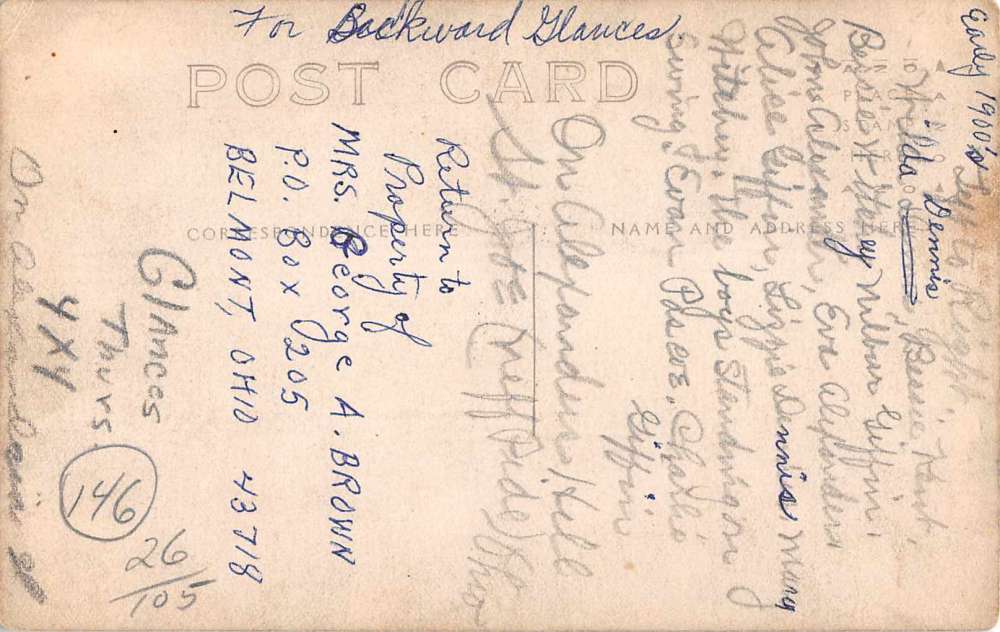 For Backward Glances.
POST CARD
CORRESPONDENCE HERE
NAME AND ADDRESS HERE
Early 1900's
Left to Right
Wilda Dennis, Bessie Kent,
Bessie Wiley Wilbur Giffin,
John Alexander, Eva Alexander
Alice Giffin, Lizzie Dennis Mary
the boys standing on
Swing, Evan Charlie
Giffin
On Alexanders Hill
St. (Neff Side) Ohio
Return to
Property of
MRS. George A. BROWN
P.O. Box 205
BELMONT, OHIO 43718
Glances
Thurs.
4X4
146
26/105
On